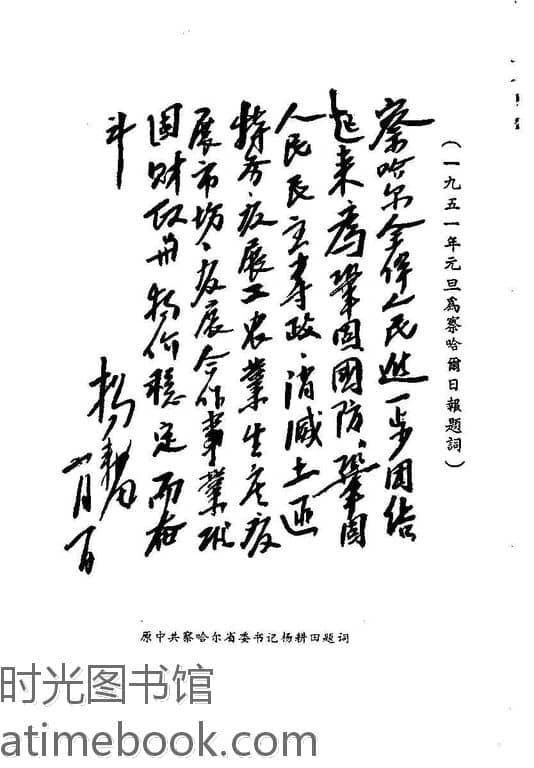 （一九五一年元旦爲察哈爾日報題詞）
察哈尔全体人民进一步团结
起来，为鞏固國防、鞏固
人民民主专政、消滅土匪
特务、发展工农業生产、发
展市场、发展合作事業、鞏
固财政与物价稳定而奋
斗
杨耕田
一月一日
原中共察哈尔省委书记杨耕田题词
时光图书馆
atimebook.com